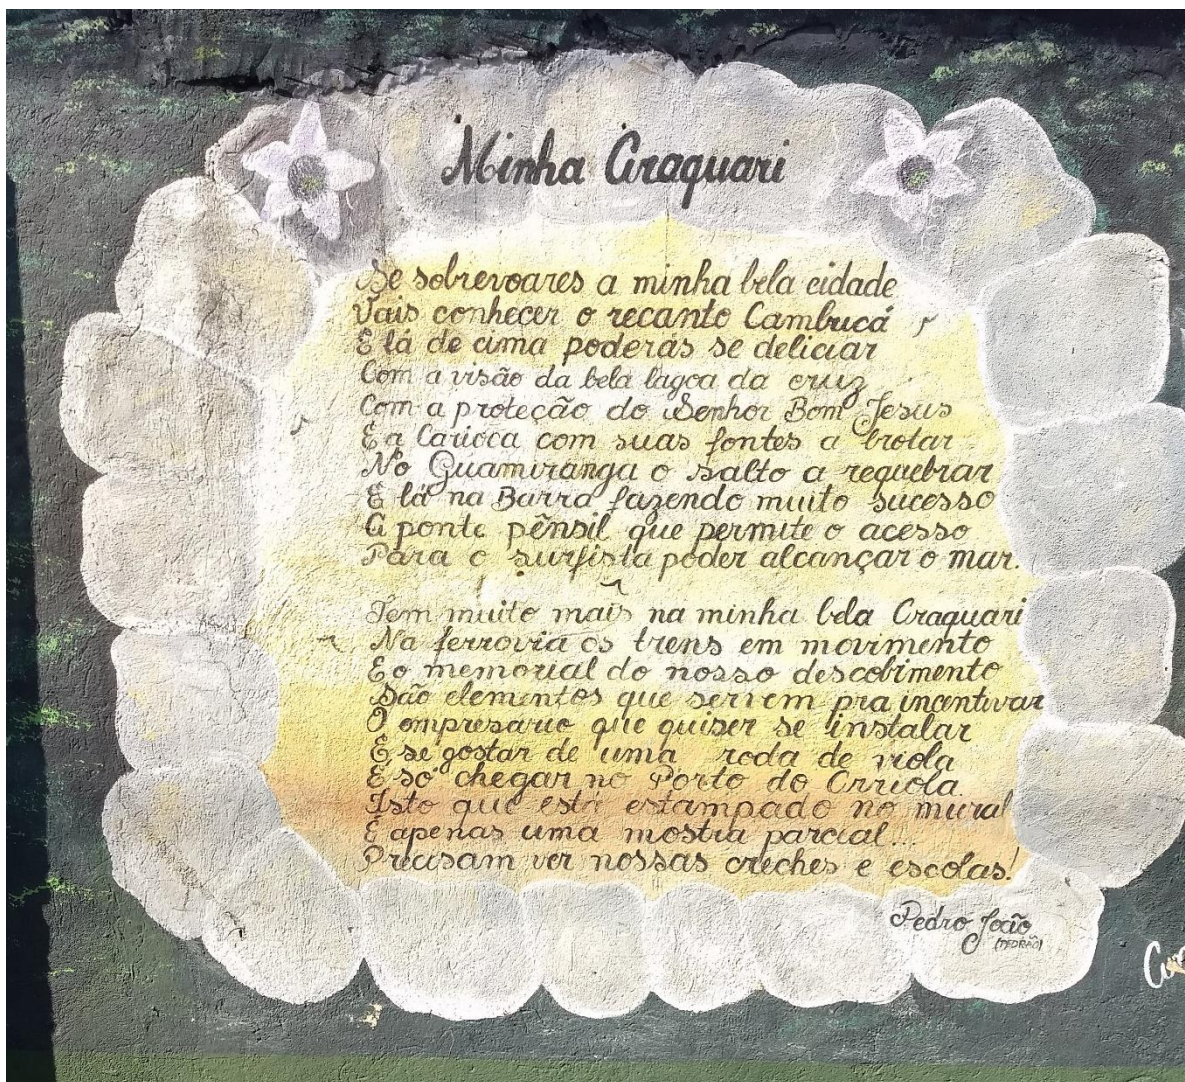 Minha Araquari
Se sobrevoares a minha bela cidade
Vais conhecer o recanto Cambucá
E lá de cima poderás se deliciar
Com a visão da bela lagoa da cruz
Com a proteção do Senhor Bom Jesus
E a Carioca com suas fontes a brotar
No Guamiranga o salto a requebrar
E lá na Barra fazendo muito sucesso
A ponte pênsil que permite o acesso
Para o surfista poder alcançar o mar.
Tem muito mais na minha bela Araquari
Na ferrovia os trens em movimento
E o memorial do nosso descobimento
São elementos que servem pra incentivar
O empresario que quiser se instalar
E se gostar de uma roda de viola
E só chegar no Porto do Orriola
Isto que está estampado no mural
É apenas uma mostra parcial...
Precisam ver nossas creches e escolas!
Pedro João
(PEDRÃO)